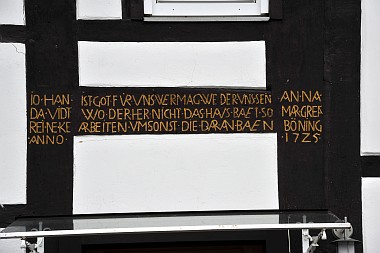 IO·HAN
DA·VIDT
REINEKE
·ANNO·
IST GOT FÜR UNS WER MAG WIDER UNSSEN
WO DER HER NICHT DAS HAUS BAET SO
ARBEITEN UMSONST DIE DARAN BAEN
AN·NA
MARGRET
BÖNING
·1725·